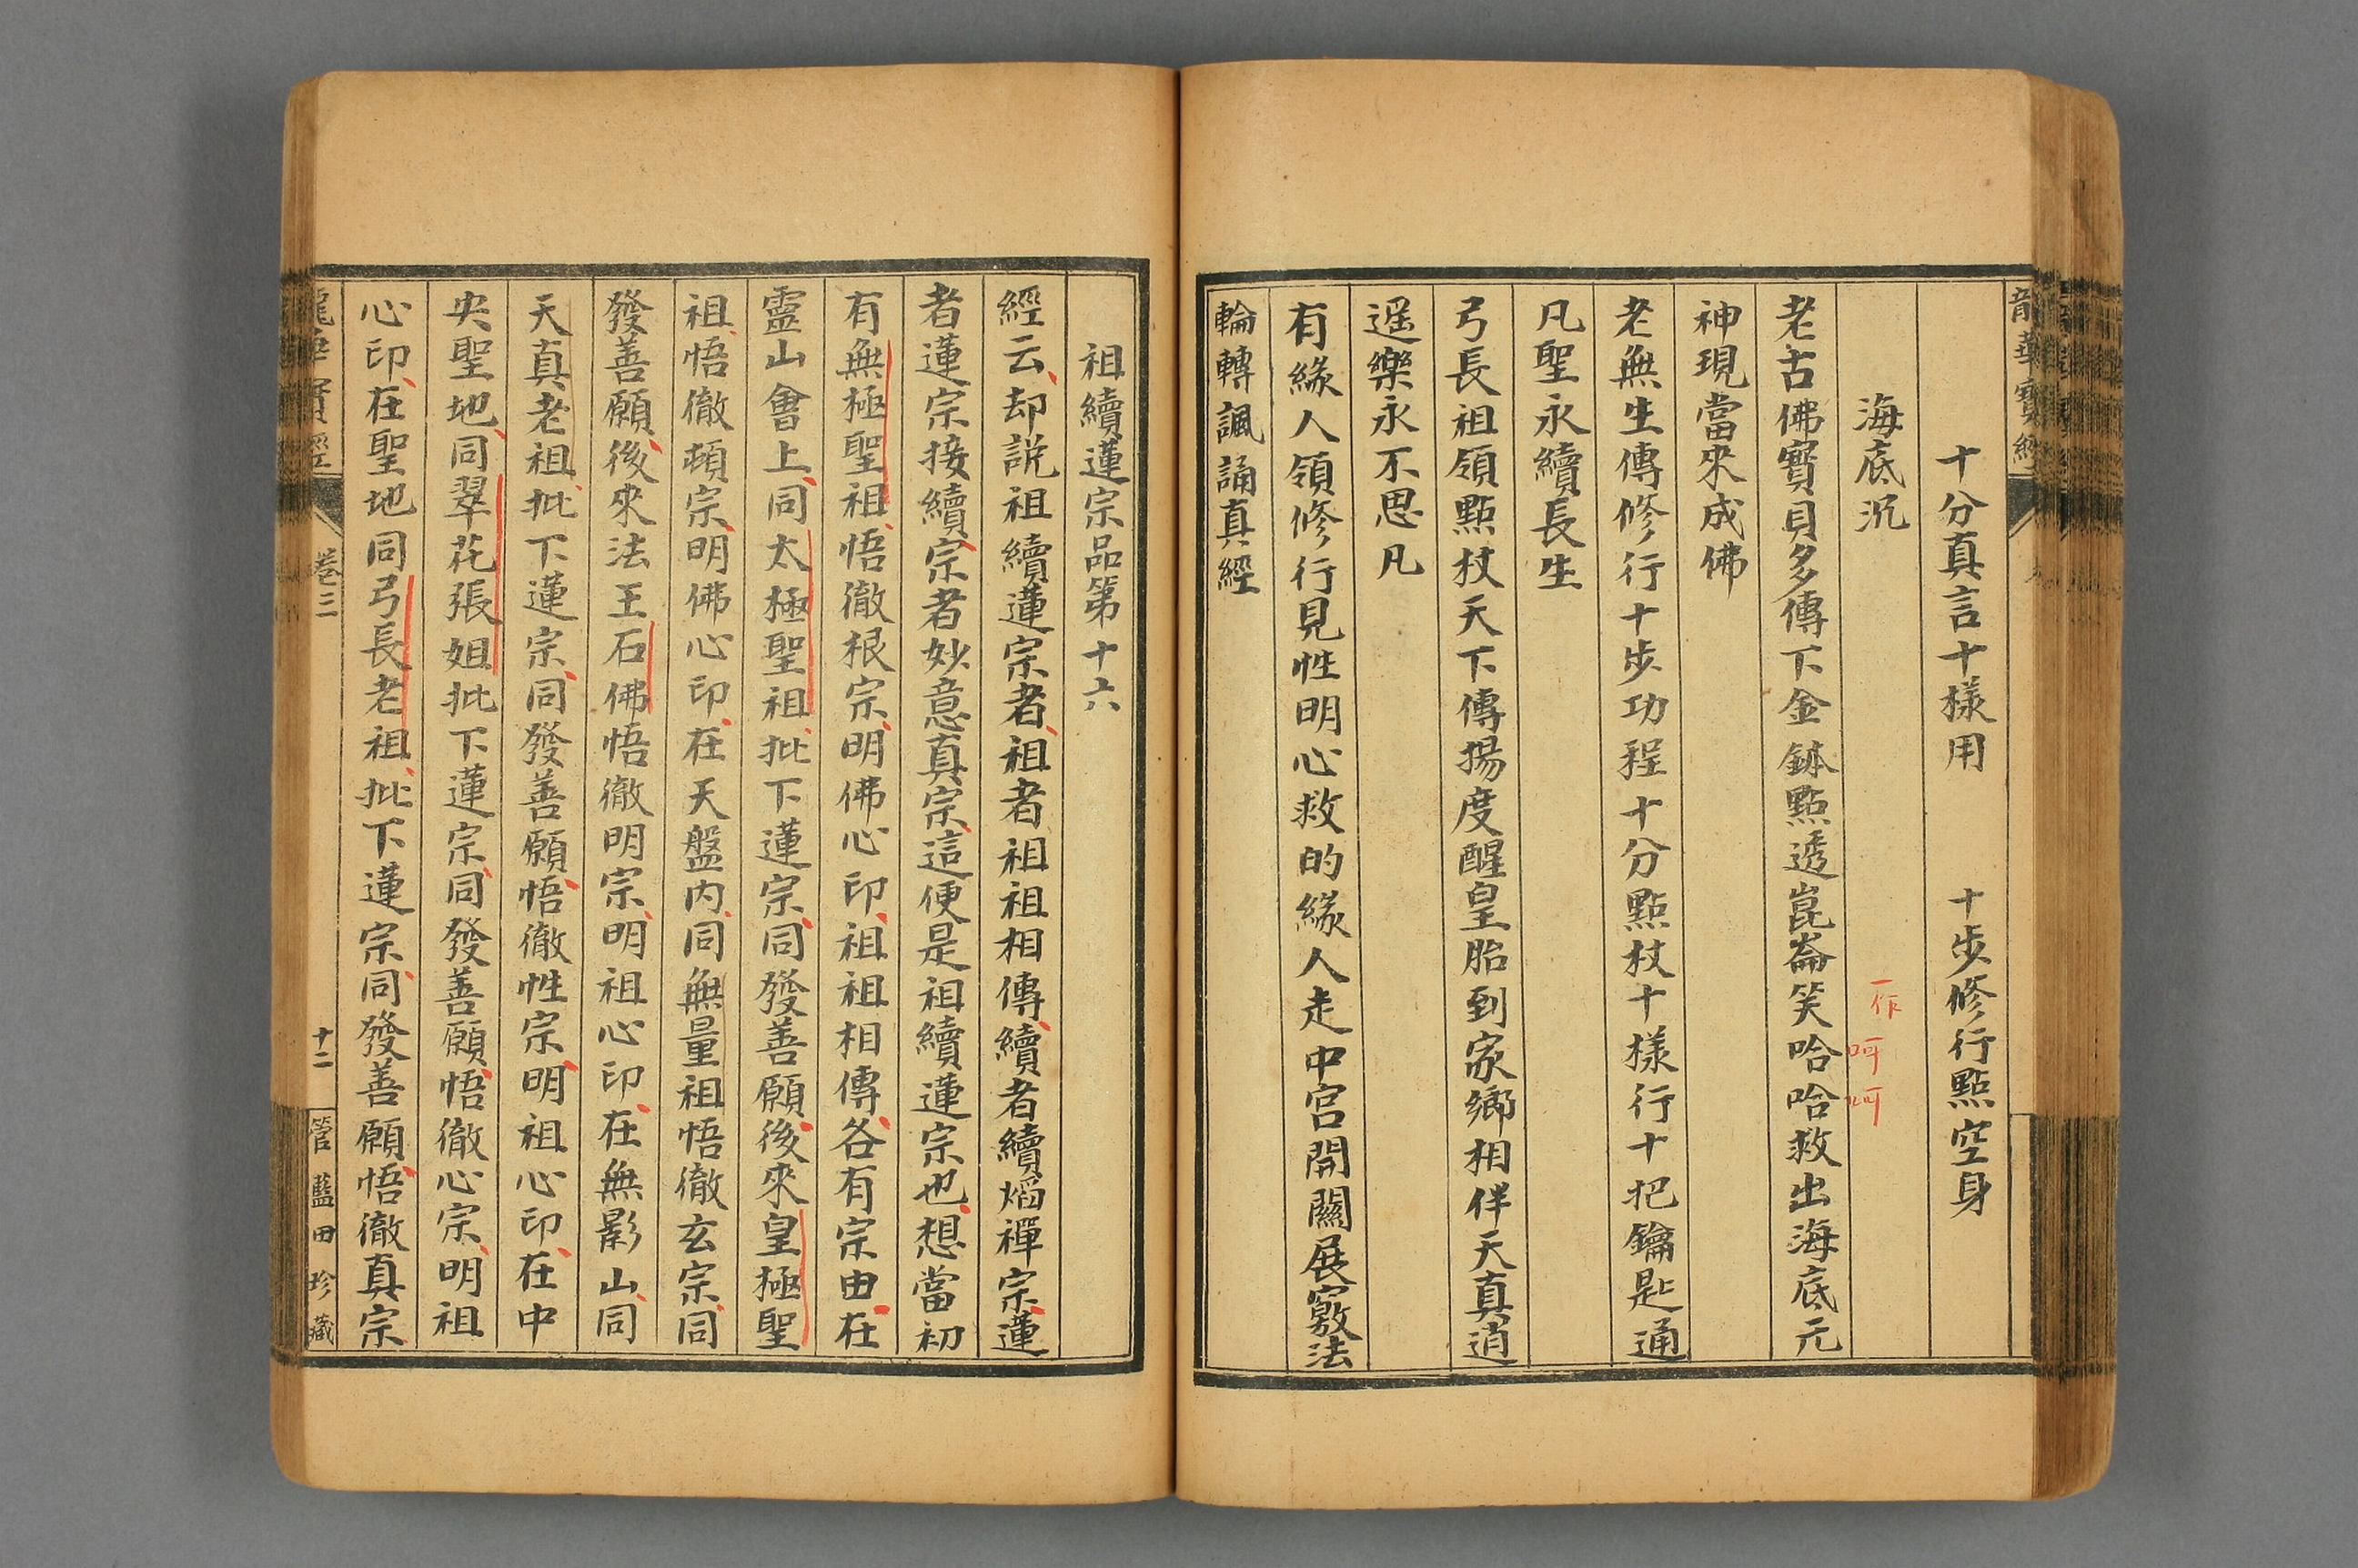 龍華寶經
十分真言十樣用　十步修行點空身
海底沉
一作呵呵
老古佛寳貝多傳下金鉢點透崑崙笑哈哈救出海底元
神現當來成佛
老無生傳修行十步功程十分點杖十樣行十把鑰匙通
凡聖永續長生
弓長祖領點杖天下傳揚度醒皇胎到家鄉相伴天真逍
遥樂永不思凡
有緣人領修行見性明心救的緣人走中宫開關展竅法
輪轉諷誦真經
祖續蓮宗品第十六
經云却説祖續蓮宗者祖者祖祖相傳續者續熖禪宗蓮
者蓮宗接續宗者妙意真宗這便是祖續蓮宗也想當初
有無極聖祖悟徹根宗明佛心印祖祖相傳各有宗由在
靈山會上同太極聖祖批下蓮宗同發善願後來皇極聖
祖悟徹頓宗明佛心印在天盤内同無量祖悟徹玄宗同
發善願後來法王石佛悟徹明宗明祖心印在無影山同
天真老祖批下蓮宗同發善願悟徹性宗明祖心印在中
央聖地同翠花張姐批下蓮宗同發善願悟徹心宗明祖
心印在聖地同弓長老祖批下蓮宗同發善願悟徹真宗
龍華寳經　卷三　十二　管藍田珍藏